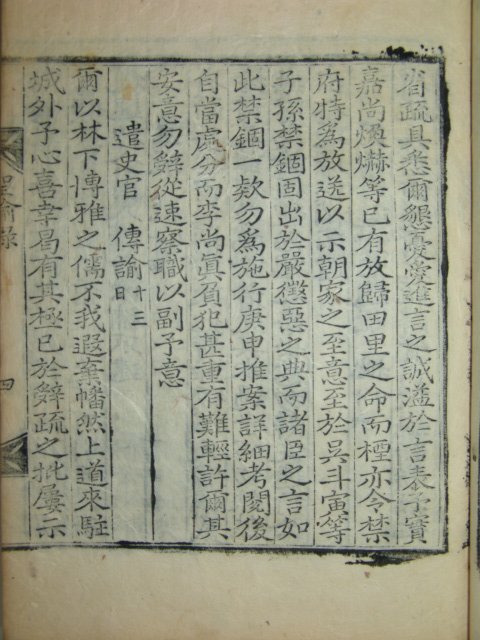 省疏具悉爾慇憂愛進言之誠溢於言表予實
嘉尚煥爀等已有放歸田里之命而檉亦令禁
府特為放送以示朝家之至意至於吳斗寅等
子孫禁錮固出於嚴懲惡之典而諸臣之言如
此禁錮一款勿為施行庚申推案詳細考閱後
自當處分而李尚眞負犯甚重有難輕許爾其
安意勿辭從速察職以副予意
遣史官 傳諭十三日
爾以林下博雅之儒不我遐棄幡然上道來駐
城外予心喜幸曷有其極已於辭疏之批屢示
諭錄
四